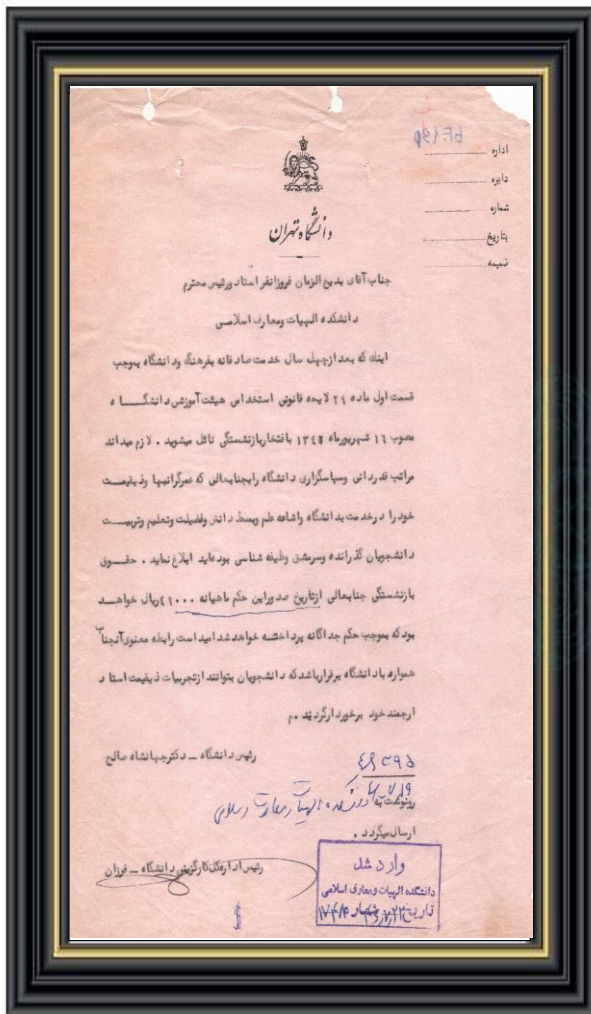 اداره
دایره
شماره
بتاریخ
ضمیمه
دانشگاه تهران
جناب آقای بدیع الزمان فروزانفر استاد ورئیس محترم
دانشکده الهیات ومعارف اسلامی
اینک که بعد ازچهل سال خدمت صادقانه بفرهنگ ودانشگاه بموجب
قسمت اول ماده ۲۱ لایحه قانونی استخدامی هیئت آموزشی دانشگاه
مصوب ۱۶ شهریورماه ۱۳۴۵ بافتخاربازنشستگی نائل میشوید . لازم میداند
مراتب قدردانی وسپاسگزاری دانشگاه رابجنابعالی که عمرگرانبها وذیقیمت
خود را درخدمت بدانشگاه واشاعه علم وبسط دانش وفضیلت وتعلیم وتربیت
دانشجویان گذرانده وسرمشق وظیفه شناسی بوده‌اید ابلاغ نماید . حقوق
بازنشستگی جنابعالی ازتاریخ صدوراین حکم ماهیانه ۴۹۰۰۰ریال خواهد
بود که بموجب حکم جداگانه پرداخته خواهد شد امید است رابطه معنوی آنجناب
همواره با دانشگاه برقرارباشد که دانشجویان بتوانند ازتجربیات ذیقیمت استاد
ارجمند خود برخوردارگردند .م
رئیس دانشگاه – دکترجهانشاه صالح
رونوشت به دانشکده الهیات ومعارف اسلامی
ارسال میگردد .
رئیس اداره کل کارگزینی دانشگاه – فرزان
وارد شد
دانشکده الهیات ومعارف اسلامی
تاریخ شماره